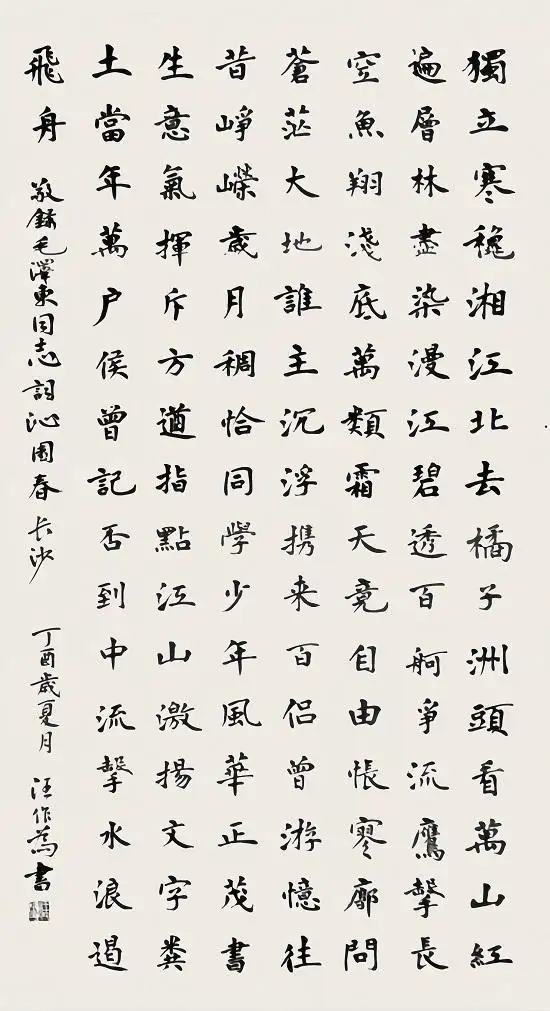 獨立寒穐湘江北去橘子洲頭看萬山紅
遍層林盡染漫江碧透百舸爭流鷹擊長
空魚翔淺底萬類霜天竟自由悵寥廓問
蒼茫大地誰主沉浮携来百侣曾游憶往
昔崢嶸歲月稠恰同學少年風華正茂書
生意氣揮斥方遒指點江山激揚文字糞
土當年萬户侯曾記否到中流擊水浪遏
飛舟
敬錄毛澤東同志詞沁園春長沙
丁酉歲夏月汪作為書